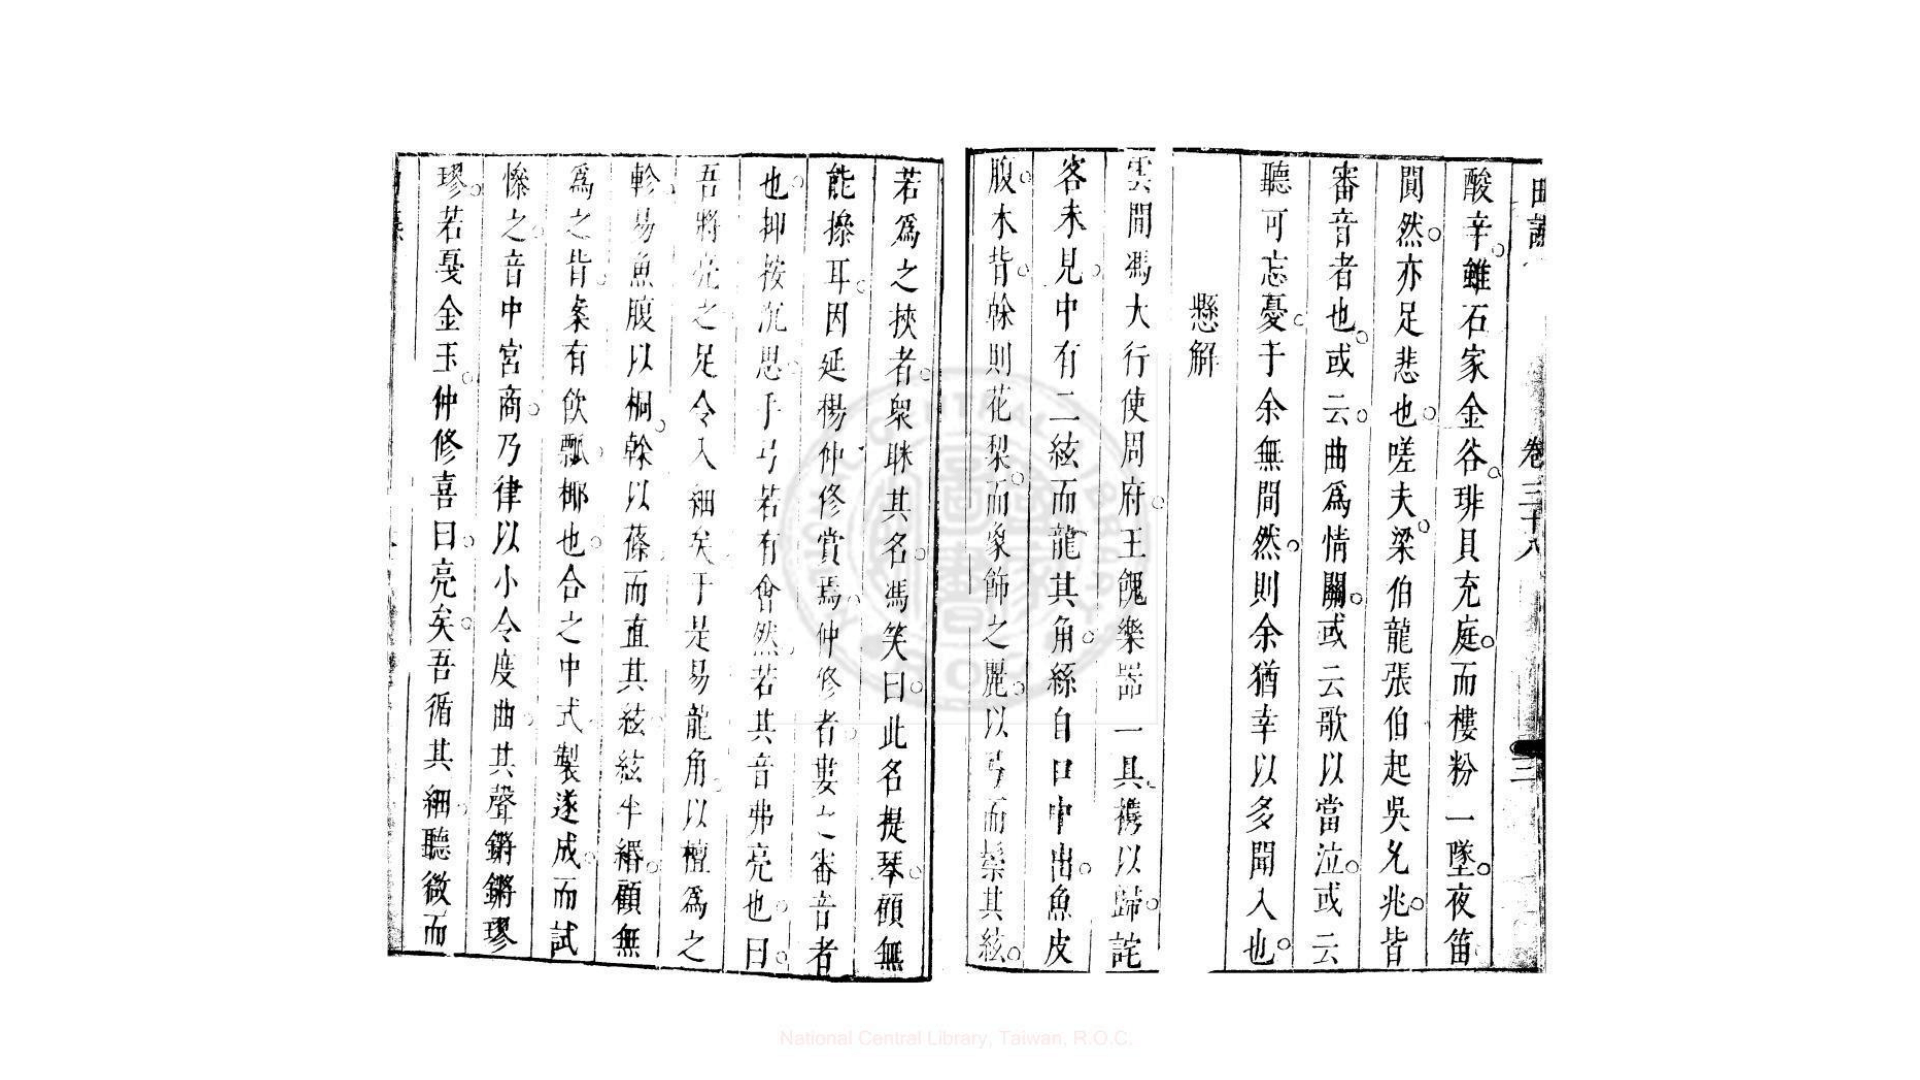 卷三十八
三
酸辛。雖石家金谷。琲貝充庭。而樓粉一墜。夜笛
閴然。亦足悲也。嗟夫。梁伯龍張伯起吳允兆。皆
審音者也。或云。曲為情關。或云歌以當泣。或云
聽可忘憂。于余無間然。則余猶幸以多聞入也。
懸解
雲間馮大行使周府。王餽樂噐一具。攜以歸。詫
客未見。中有二絃而龍其角。絲自口中出。魚皮
腹。木背。幹則花梨。而象飾之麗。以弓而䯾其絃。
若為之挾者。衆眯其名。馮笑曰。此名提琴。顧無
能操耳。因延楊仲修賞焉。仲修者婁之審音者
也。抑按沉思。手弓若有會然。若其音弗亮也。曰。
吾將亮之足令入細矣。于是易龍角。以檀為之
軫。易魚腹以桐。幹以篠而直其絃。絃半緡。顧無
為之背。粲有飲瓢。椰也。合之中式製遂成。而試
慘之音中宮商。乃律以小令度曲。其聲鏘鏘璆
璆。若戞金玉。仲修喜曰。亮矣。吾循其細。聽微而
National Central Library, Taiwan, R.O.C.